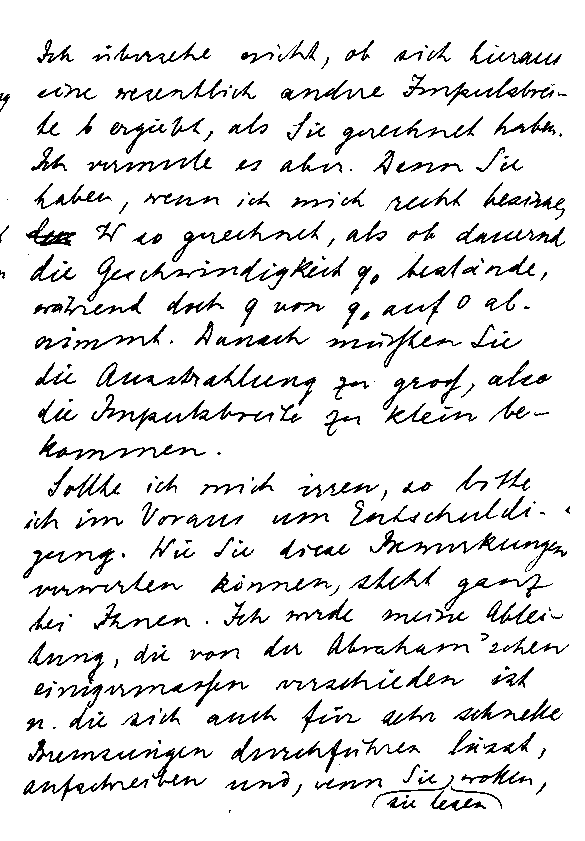 Ich übersehe nicht, ob sich hieraus
eine wesentlich andre Impulsbrei-
te b ergiebt, als Sie gerechnet haben.
Ich vermute es aber. Denn Sie
haben, wenn ich mich recht besinne,
W so gerechnet, als ob dauernd
die Geschwindigkeit q₀ bestände,
während doch q von q₀ auf 0 ab-
nimmt. Danach müßten Sie
die Ausstrahlung zu groß, also
die Impulsbreite zu klein be-
kommen.
Sollte ich mich irren, so bitte
ich im Voraus um Entschuldi-
gung. Wie Sie diese Bemerkungen
verwerten können, steht ganz
bei Ihnen. Ich werde meine Ablei-
tung, die von der Abraham'schen
einigermaßen verschieden ist
u. die sich auch für sehr schnelle
Bremsungen durchführen lässt,
aufschreiben und, wenn Sie wollen,
sie lesen